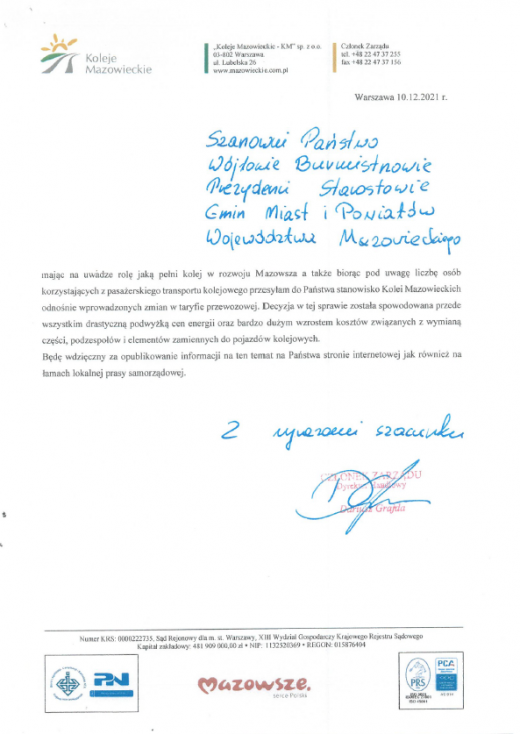 Koleje
Mazowieckie
„Koleje Mazowieckie - KM” sp. z o.o.
03-802 Warszawa
ul. Lubelska 26
www.mazowieckie.com.pl
Członek Zarządu
tel. +48 22 47 37 255
fax +48 22 47 37 156
Warszawa 10.12.2021 r.
Szanowni Państwo
Wójtowie Burmistrzowie
Prezydenci Starostowie
Gmin Miast i Powiatów
Województwa Mazowieckiego
mając na uwadze rolę jaką pełni kolej w rozwoju Mazowsza a także biorąc pod uwagę liczbę osób
korzystających z pasażerskiego transportu kolejowego przesyłam do Państwa stanowisko Kolei Mazowieckich
odnośnie wprowadzonych zmian w taryfie przewozowej. Decyzja w tej sprawie została spowodowana przede
wszystkim drastyczną podwyżką cen energii oraz bardzo dużym wzrostem kosztów związanych z wymianą
części, podzespołów i elementów zamiennych do pojazdów kolejowych.
Będę wdzięczny za opublikowanie informacji na ten temat na Państwa stronie internetowej jak również na
łamach lokalnej prasy samorządowej.
Z wyrazami szacunku
CZŁONEK ZARZĄDU
Dyrektor Handlowy
Dariusz Grajda
Numer KRS: 0000222735, Sąd Rejonowy dla m. st. Warszawy, XIII Wydział Gospodarczy Krajowego Rejestru Sądowego
Kapitał zakładowy: 481 909 000,00 zł • NIP: 1132520369 • REGON: 015876404
PN
Mazowsze.
serce Polski
PRS
PCA